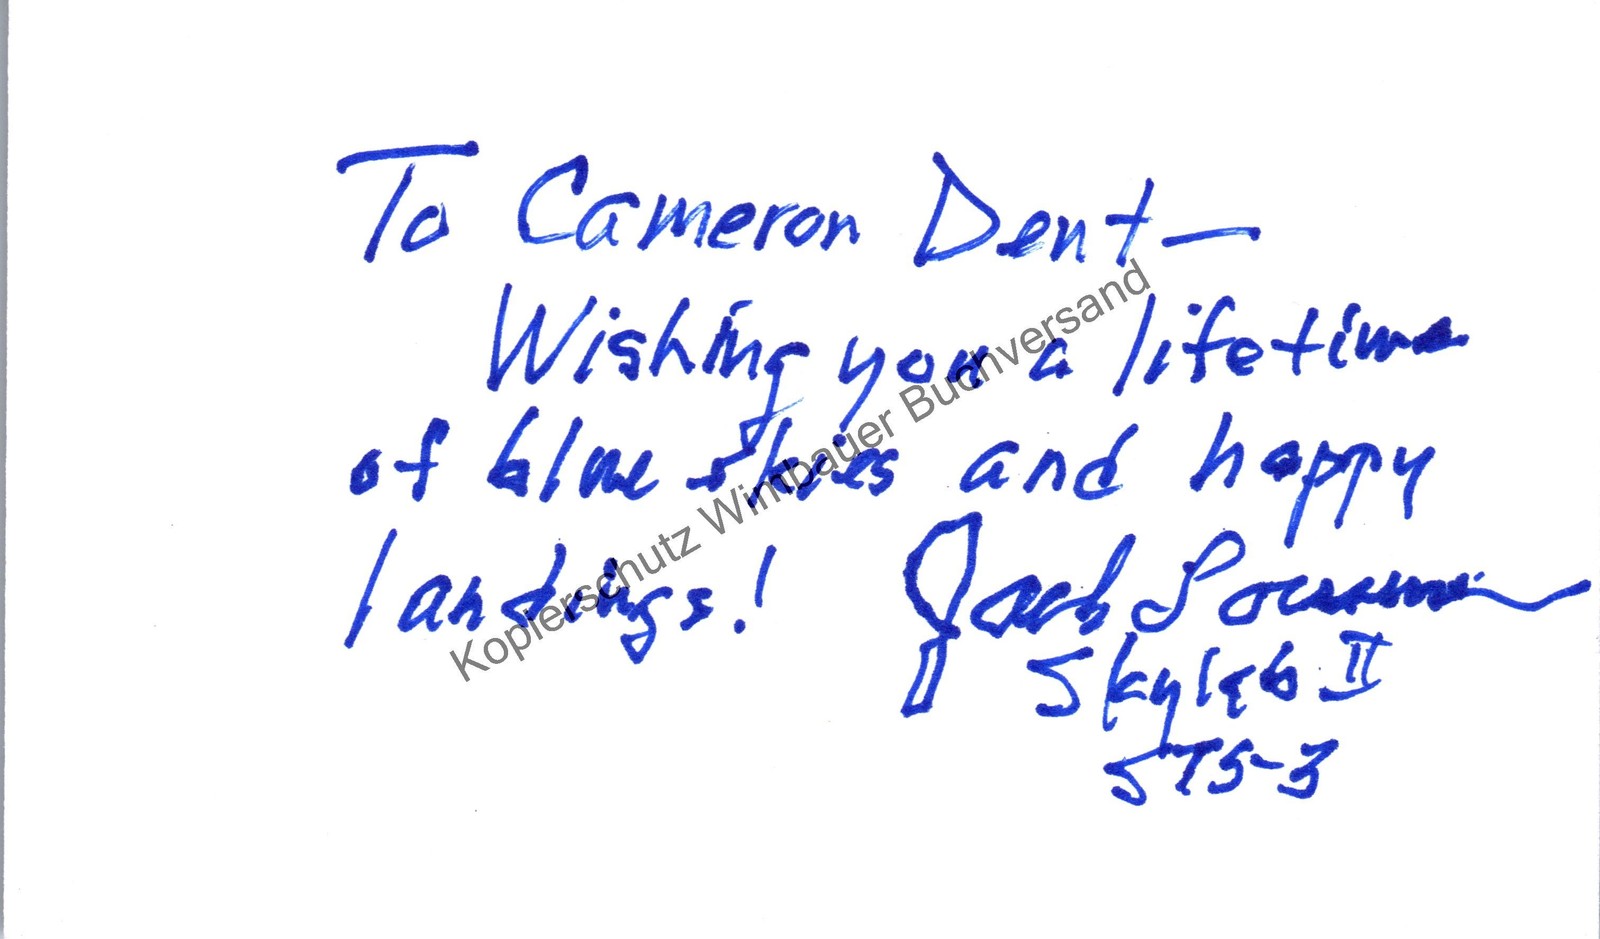 To Cameron Dent —
Wishing you a lifetime
of blue skies and happy
landings!
Jack Lousma
Skylab II
STS-3
Kopierschutz Wimbauer Buchversand